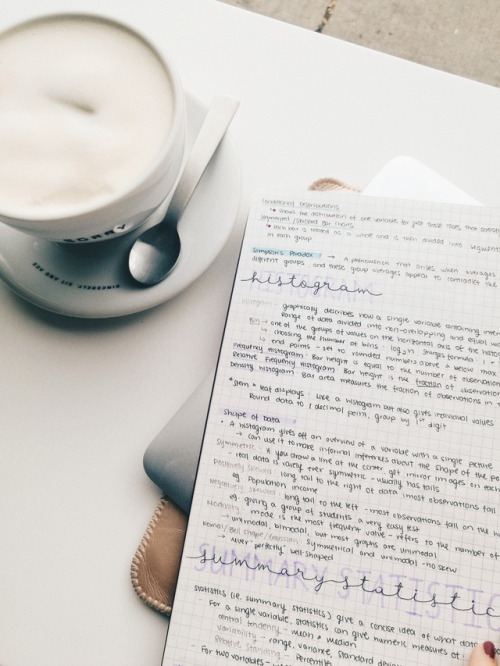 SORRY
SINCERELY, SIT AND SIP.
conditional distributions
↳ shows the distribution of one variable for just those cases that satisfy
segmented/stacked bar charts
↳ each bar is treated as a whole and is then divided into segments
in each group
Simpson's Paradox: → a phenomenon that arises when averages
different groups, and these group averages appear to contradict the
histogram
Histogram - graphically describes how a single variable containing
Range of data divided into non-overlapping and equal
Bin → one of the groups of values on the horizontal axis of the
↳ choosing the number of bins: log₂n Sturges formula
↳ end points - set to rounded numbers above & below max,
Frequency Histogram: Bar height is equal to the number of observations
Relative Frequency Histogram: Bar height is the fraction of observations
Density Histogram: Bar area measures the fraction of observations in
* Stem & leaf displays: like a histogram but also gives individual values
Round data to 1 decimal point, group by 1st digit
Shape of Data
• A histogram gives off an overview of a variable with a single picture
→ can use it to make informal inferences about the shape of the
Symmetric: if you draw a line at the center, get mirror images on each
- real data is rarely ever symmetric - usually has tails
Positively skewed: long tail to the right of data, most observations fall
eg. Population income
Negatively skewed: long tail to the left - most observations fall on the
eg. giving a group of students a very easy test
Modality: mode is the most frequent value - refers to the number of
- unimodal, bimodal, but most graphs are unimodal
Normal/Bell shape/Gaussian: symmetrical and unimodal - no skew
→ never perfectly bell-shaped
SUMMARY STATISTICS
summary statistic
Statistics (i.e. summary statistics) give a concise idea of what data
For a single variable, statistics can give numeric measures of
central tendency - mean & median
variability - range, variance, standard
relative standing - percentile
- For two variables -